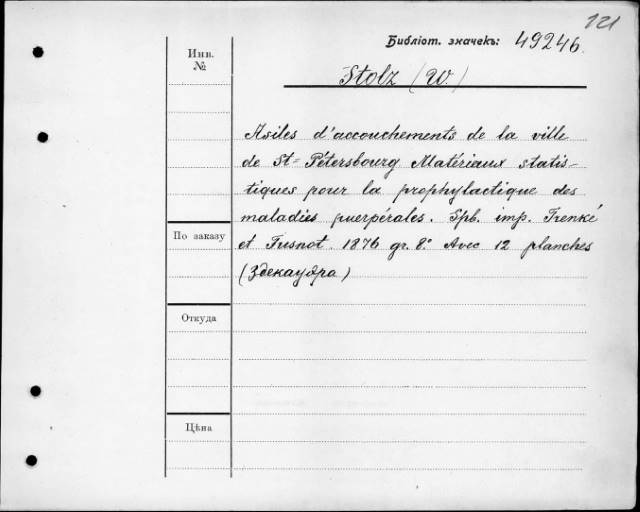 121
Библіот. значекъ: 49246.
Инв.
№
Stolz (W.)
Asiles d'accouchements de la ville
de St= Pétersbourg Matériaux statis-
tiques pour la prophylactique des
maladies puerpérales. Spb. imp. Trenké
По заказу
et Fusnot. 1876 gr. 8.° Avec 12 planches
(Здекаура)
Откуда
Цѣна